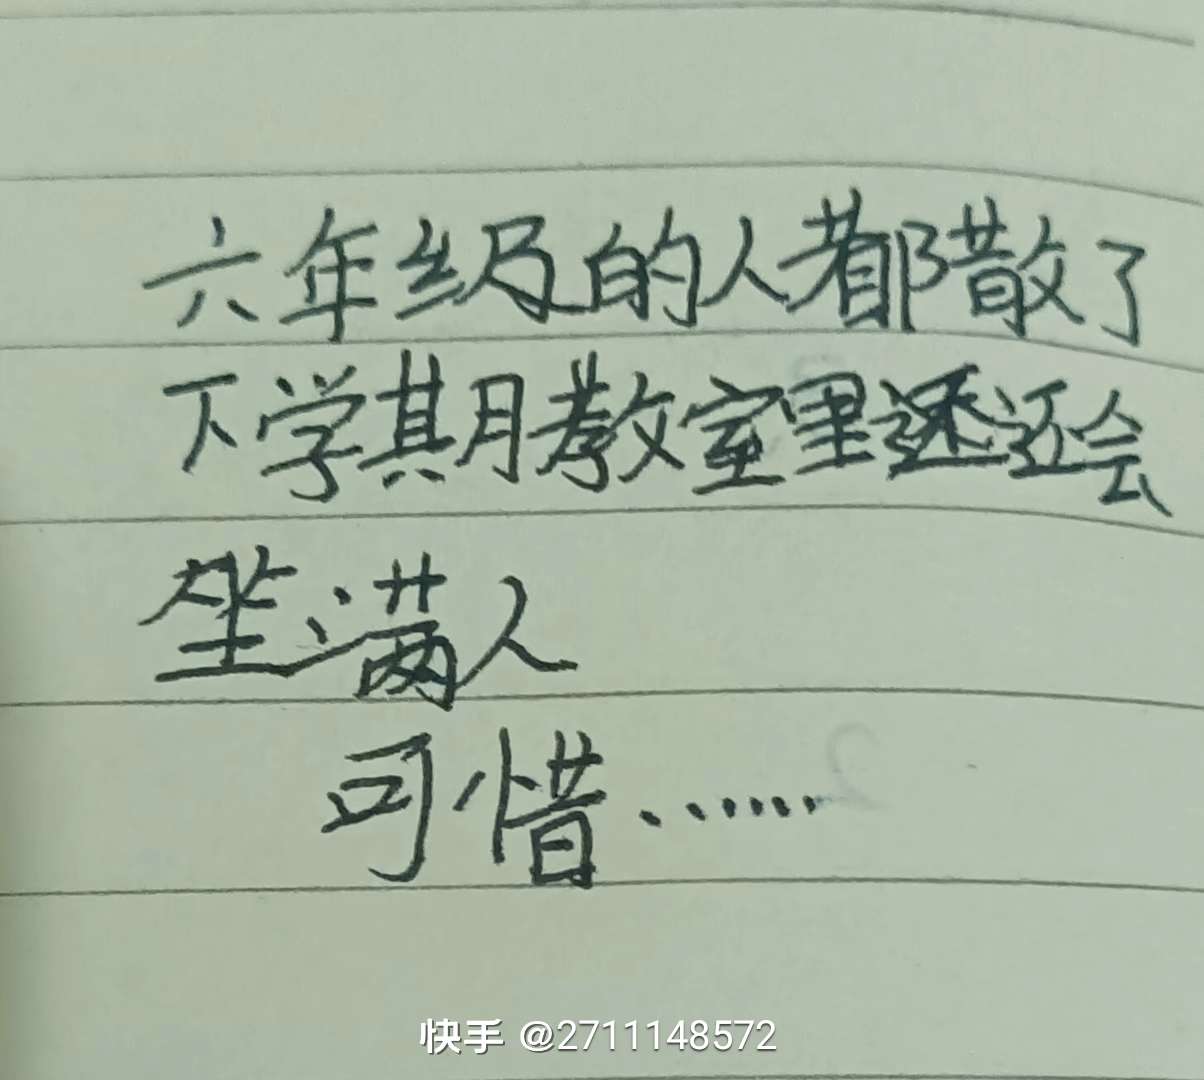 六年级的人都散了
下学期教室里还会
坐满人
可惜……
快手 @2711148572